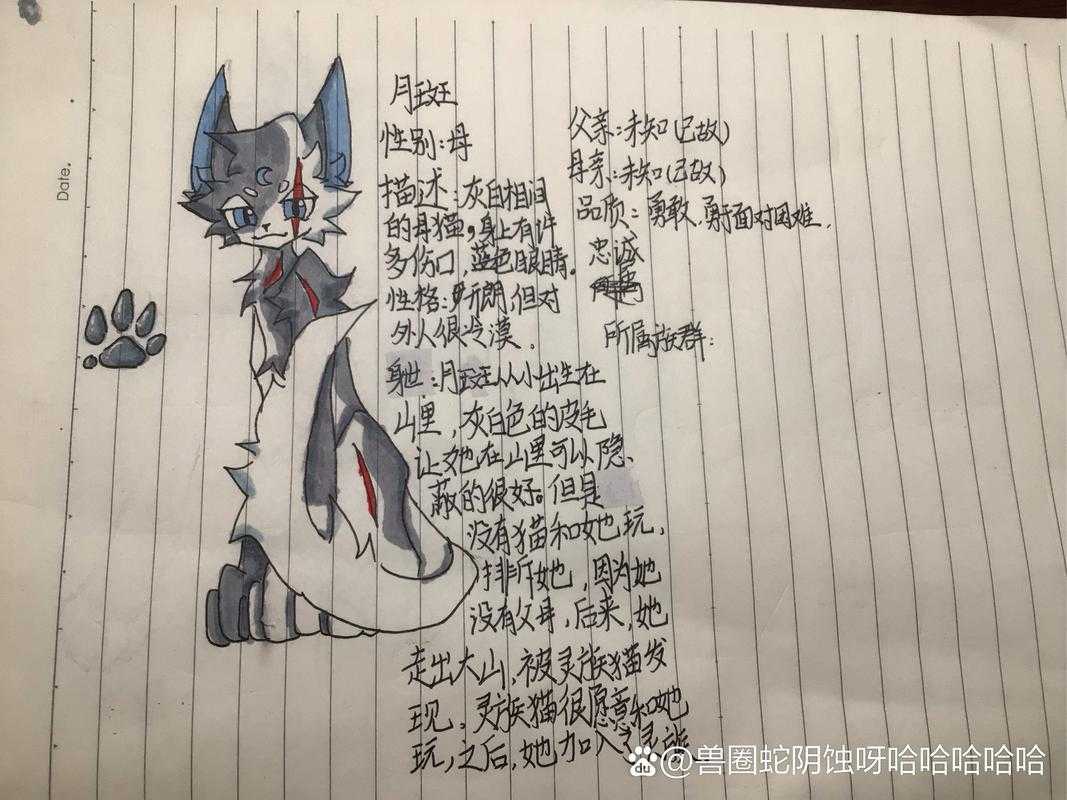 Date.
月斑
性别:母
描述:灰白相间
的母猫,身上有许
多伤口,蓝色眼睛。
性格:开朗,但对
外人很冷漠.
身世:月斑从小出生在
山里,灰白色的皮毛
让她在山里可以隐
蔽的很好。但是
没有猫和她玩,
排斥她,因为她
没有父母,后来,她
走出大山,被灵族猫发
现,灵族猫很愿意和她
玩,之后,她加入灵族
父亲:未知(已故)
母亲:未知(已故)
品质:勇敢.勇于面对困难.
忠诚
所属族群:
@兽圈蛇阴蚀呀哈哈哈哈哈哈